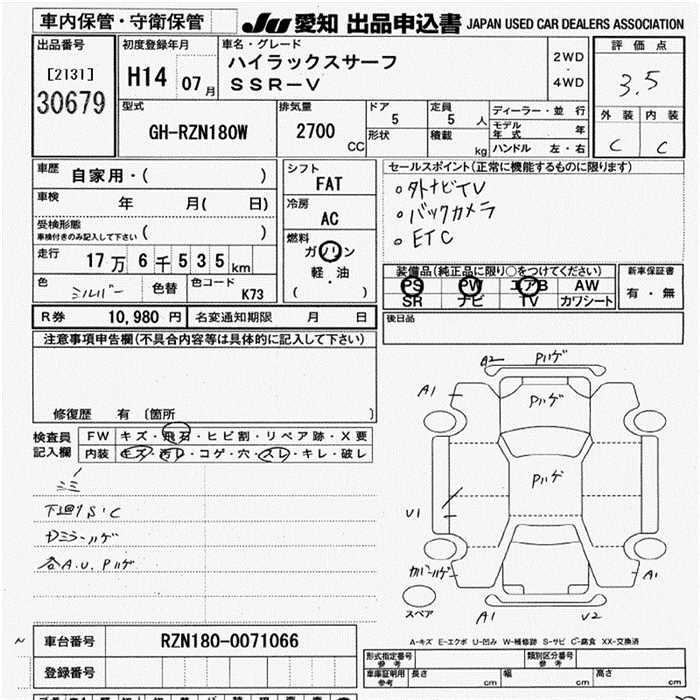 車内保管・守衛保管
JU 愛知 出品申込書 JAPAN USED CAR DEALERS ASSOCIATION
出品番号
[2131]
30679
初度登録年月
H14 07月
車名・グレード
ハイラックスサーフ
SSR-V
2WD
・
4WD
評価点
3.5
外装 内装
C C
型式
GH-RZN180W
排気量
2700
CC
ドア
5
定員
5 人
形状
積載
kg
ディーラー・並行
モデル年式 年
ハンドル 左・右
車歴
自家用・( )
車検
年 月( 日)
受検形態
車検付きのみ記入して下さい ( )
走行
17万6千535km
色
シルバー
色替
色コード
K73
シフト
FAT
冷房
AC
燃料
ガソリン
軽・油
( )
セールスポイント(正常に機能するものに限ります)
○外ナビTV
○バックカメラ
○ETC
装備品(純正品に限り○をつけてください)
PS PW エアB AW
SR ナビ TV カワシート
新車保証書
有・無
R券 10,980円 名変通知期限 月 日
後日品
注意事項申告欄(不具合内容等は具体的に記入して下さい)
修復歴 有〔箇所 〕
検査員
記入欄
FW キズ・飛石・ヒビ割・リペア跡・X要
内装 キズ・汚レ・コゲ・穴・スレ・キレ・破レ
下廻りS・C
各A.U.Pハゲ
A2 Pハゲ
A1
Pハゲ
Pハゲ
U1
カバーハゲ
A1
スペア
A1 U2
A-キズ E-エクボ U-凹み W-補修跡 S-サビ C-腐食 XX-交換済
車台番号
RZN180-0071066
登録番号
形式指定番号
参考
類別区分番号
参考
車庫証明用
参考
長さ cm 幅 cm 高さ cm